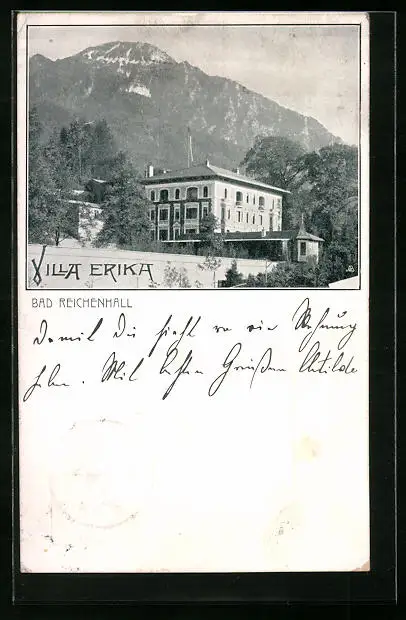 VILLA ERIKA
BAD REICHENHALL
Damit Du siehst wo die Wohnung
Mit besten Grüßen Clotilde